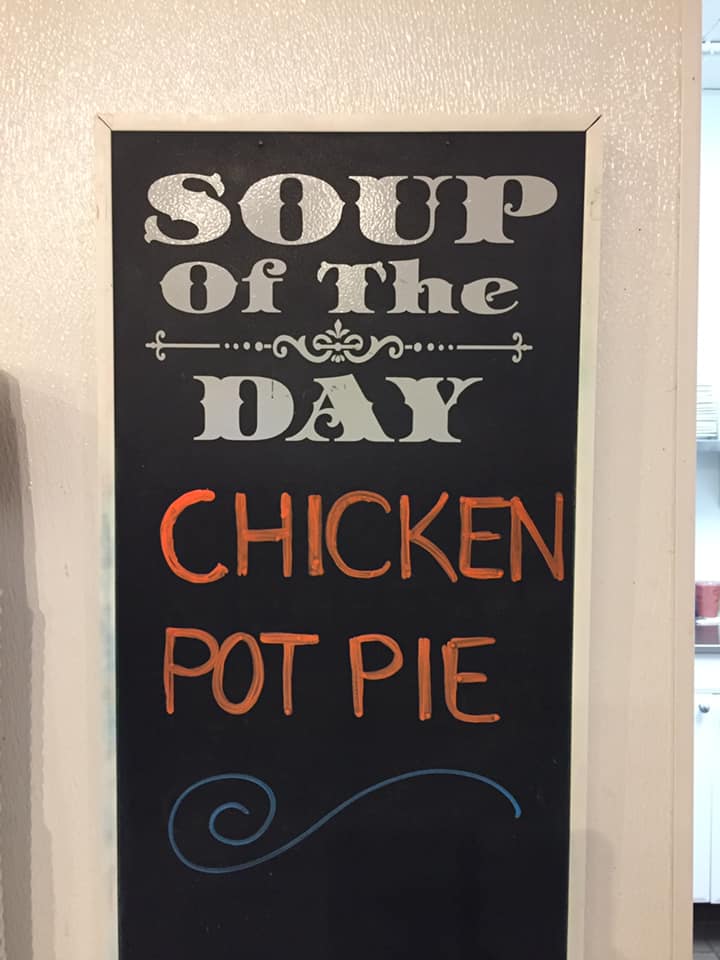 SOUP
Of The
DAY
CHICKEN
POT PIE